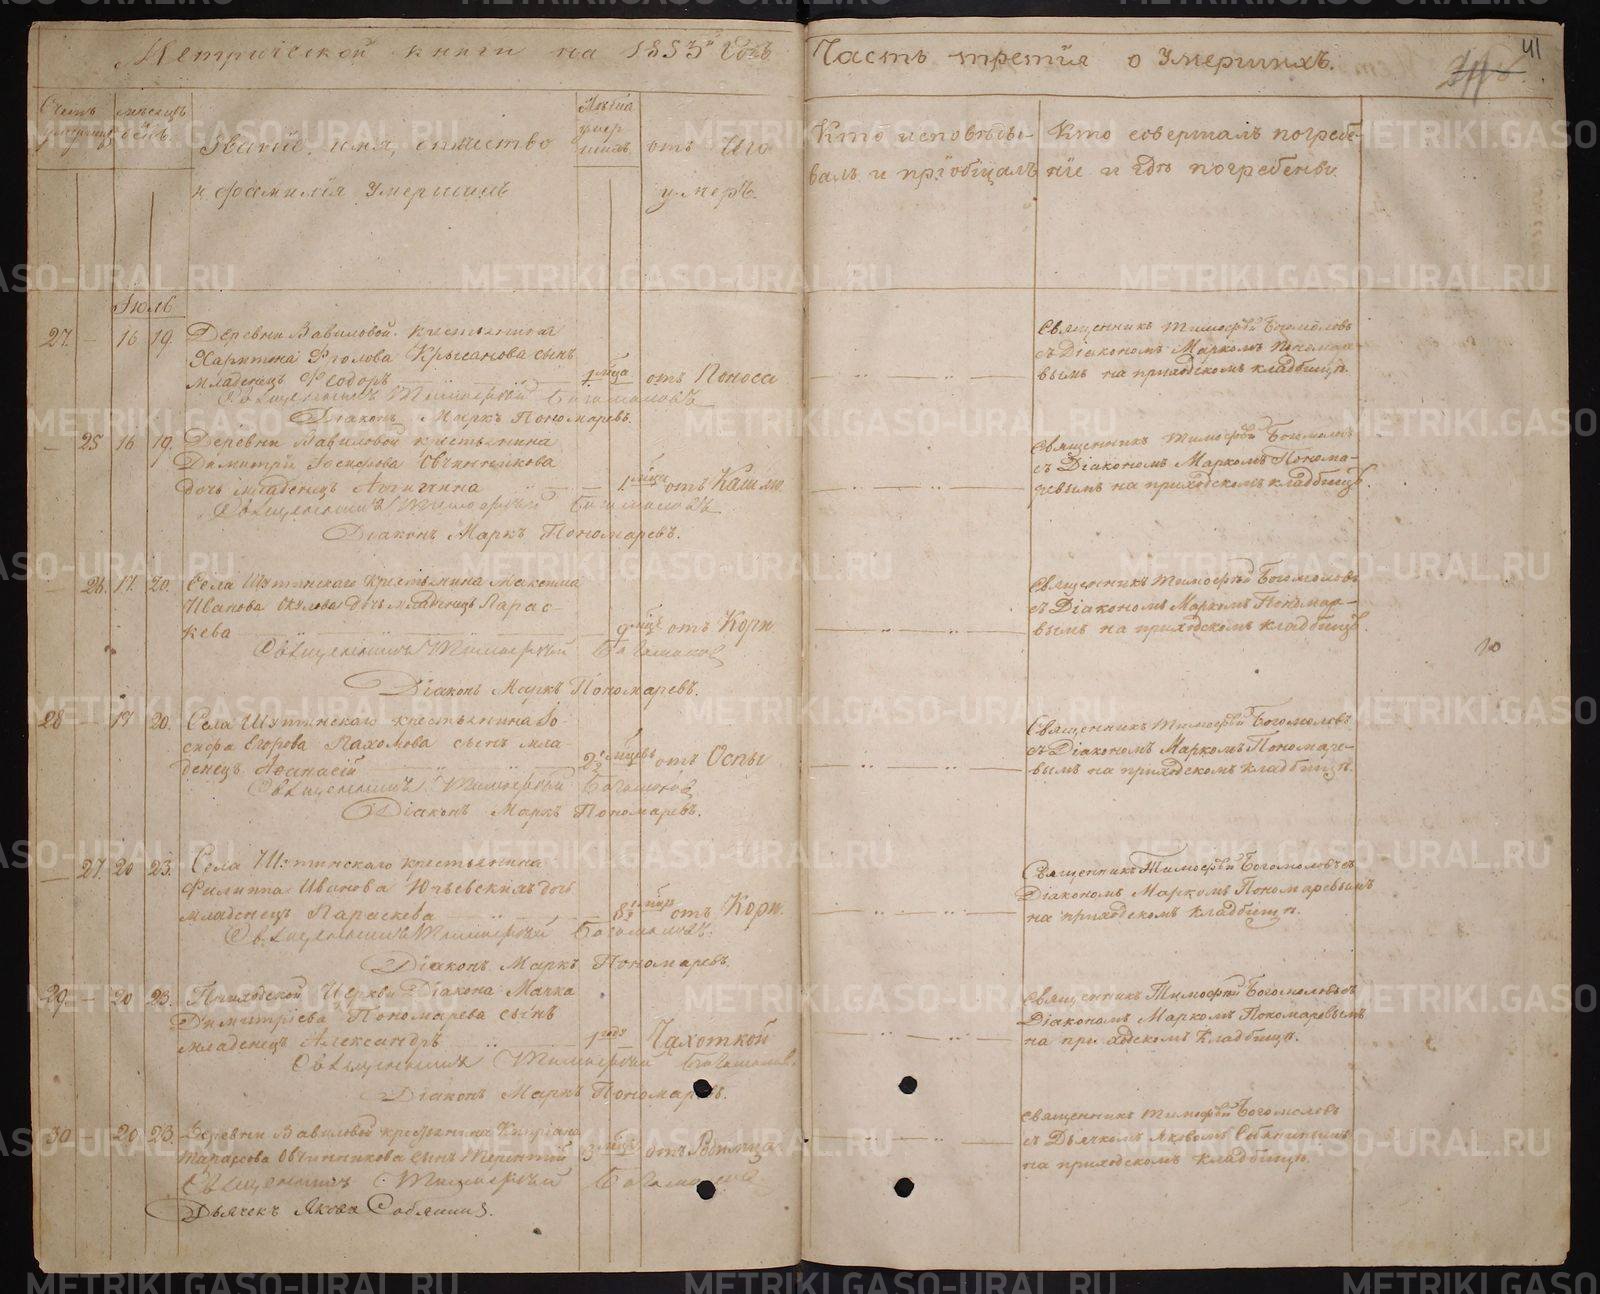 Метрической книги на 1855й Годъ
Часть третія о Умершихъ.
41
Счетъ умершихъ
мѣсяцъ день.
Званіе, имя, отчество
и фамилія Умершихъ
Лѣта умершихъ
отъ чего
умеръ.
Кто исповѣды-
валъ и пріобщалъ
Кто совершалъ погребе-
ніе и гдѣ погребены.
Іюль
27. — 16 19. Деревни Вавиловой крестьянина
Харитона Фролова Крысанова сынъ
младенецъ Ѳеодоръ 1 мѣца отъ Поноса
Священникъ Тимоѳей Богомоловъ
Діаконъ Маркъ Пономаревъ.
Священникъ Тимоѳей Богомоловъ
съ Діакономъ Маркомъ Понома-
вымъ на приходскомъ кладбищѣ.
— 25 16 19. Деревни Вавиловой крестьянина
Димитрія Іосифова Овчинникова
дочь младенецъ 1. мѣца отъ Кашлю
Священникъ Тимоѳей Богомоловъ
Діаконъ Маркъ Пономаревъ.
Священникъ Тимоѳей Богомоловъ
съ Діакономъ Маркомъ Понома-
ревымъ на приходскомъ кладбищѣ.
— 26. 17. 20. Села Шутинскаго крестьянина Максима
Иванова Окулова дочь младенецъ Парас-
кева 9 мѣцъ отъ Кори
Священникъ Тимоѳей Богомоловъ
Діаконъ Маркъ Пономаревъ.
Священникъ Тимоѳей Богомоловъ
съ Діакономъ Маркомъ Пономар-
вымъ на приходскомъ кладбищѣ.
28 — 17 20. Села Шутинскаго крестьянина Іо-
сифа Егорова Пахомова сынъ мла-
денецъ Аѳанасій 2хъ мѣцевъ отъ Оспы
Священникъ Тимоѳей Богомоловъ
Діаконъ Маркъ Пономаревъ.
Священникъ Тимоѳей Богомоловъ
съ Діакономъ Маркомъ Пономаре-
вымъ на приходскомъ кладбищѣ.
— 27. 20 23. Села Шутинскаго крестьянина
Филиппа Иванова дочь
младенецъ Параскева 8 мѣцъ отъ Кори.
Священникъ Тимоѳей Богомоловъ.
Діаконъ Маркъ Пономаревъ.
Священникъ Тимоѳей Богомоловъ съ
Діакономъ Маркомъ Пономаревымъ
на приходскомъ кладбищѣ.
29 — 20 23. Приходской Церкви Діакона Марка
Димитріева Пономарева сынъ
младенецъ Александръ 1 года Чахоткой
Священникъ Тимоѳей Богомоловъ.
Діаконъ Маркъ Пономаревъ.
Священникъ Тимоѳей Богомоловъ съ
Діакономъ Маркомъ Пономаревымъ
на приходскомъ кладбищѣ.
30 20 23. Деревни Вавиловой крестьянина Кипріана
Тарасова Овчинникова сынъ Терентій 3 мѣцъ отъ Родимца
Священникъ Тимоѳей Богомоловъ
Дьячекъ Яковъ Собянинъ.
Священникъ Тимоѳей Богомоловъ
съ Дьячкомъ Яковомъ Собянинымъ
на приходскомъ кладбищѣ.
METRIKI.GASO-URAL.RU